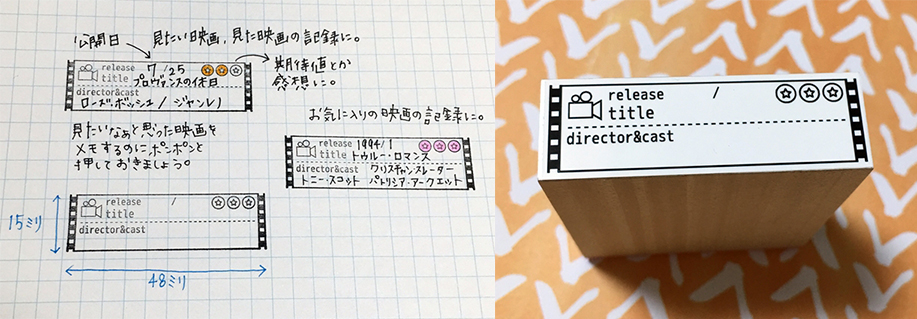 公開日
見たい映画、見た映画の記録に。
release 7/25
title プロヴァンスの休日
director&cast
ローズ・ボッシュ / ジャン・レノ
期待値とか
感想に。
お気に入りの映画の記録に。
見たいなぁと思った映画を
メモするのにポンポンと
押しておきましょう。
release 1994/1
title トゥルー・ロマンス
director&cast クリスチャンスレーター
トニー・スコット パトリシア・アークエット
release /
title
director&cast
15ミリ
48ミリ
release /
title
director&cast